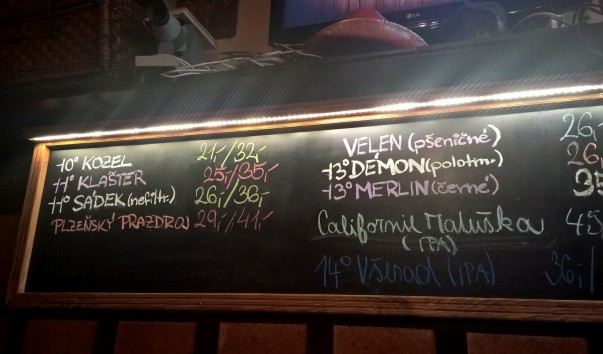 10° KOZEL 21,-/32,-
11° KLÁŠTER 25,-/35,-
11° SÁDEK (nefiltr.) 26,-/36,-
PLZEŇSKÝ PRAZDROJ 29,-/41,-
VELEN (pšeničné) 26,-
13° DÉMON (polotm.) 26
13° MERLIN (černé) 35
Californie Matuška 45
(IPA)
14° Všerad (IPA) 36,-/
LG